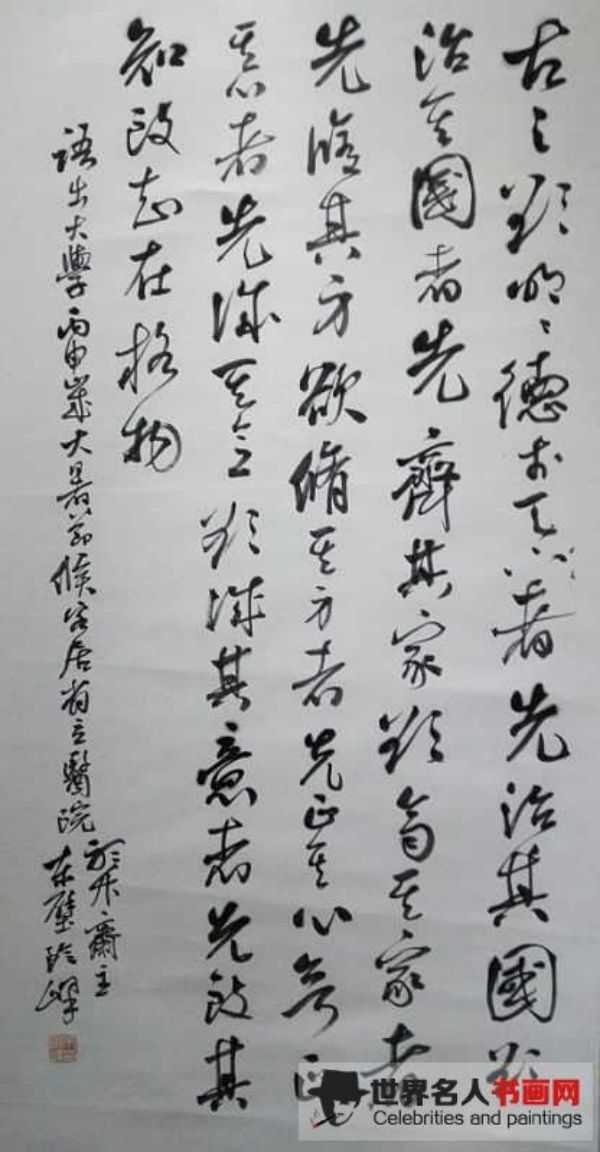 古之欲明明德於天下者先治其國欲
治其國者先齊其家欲齊其家者
先修其身欲修其身者先正其心欲正
其心者先誠其意欲誠其意者先致其
知致知在格物
語出大學丙申歲大暑節候客居省立醫院
齋主
世界名人书画网
Celebrities and paintings